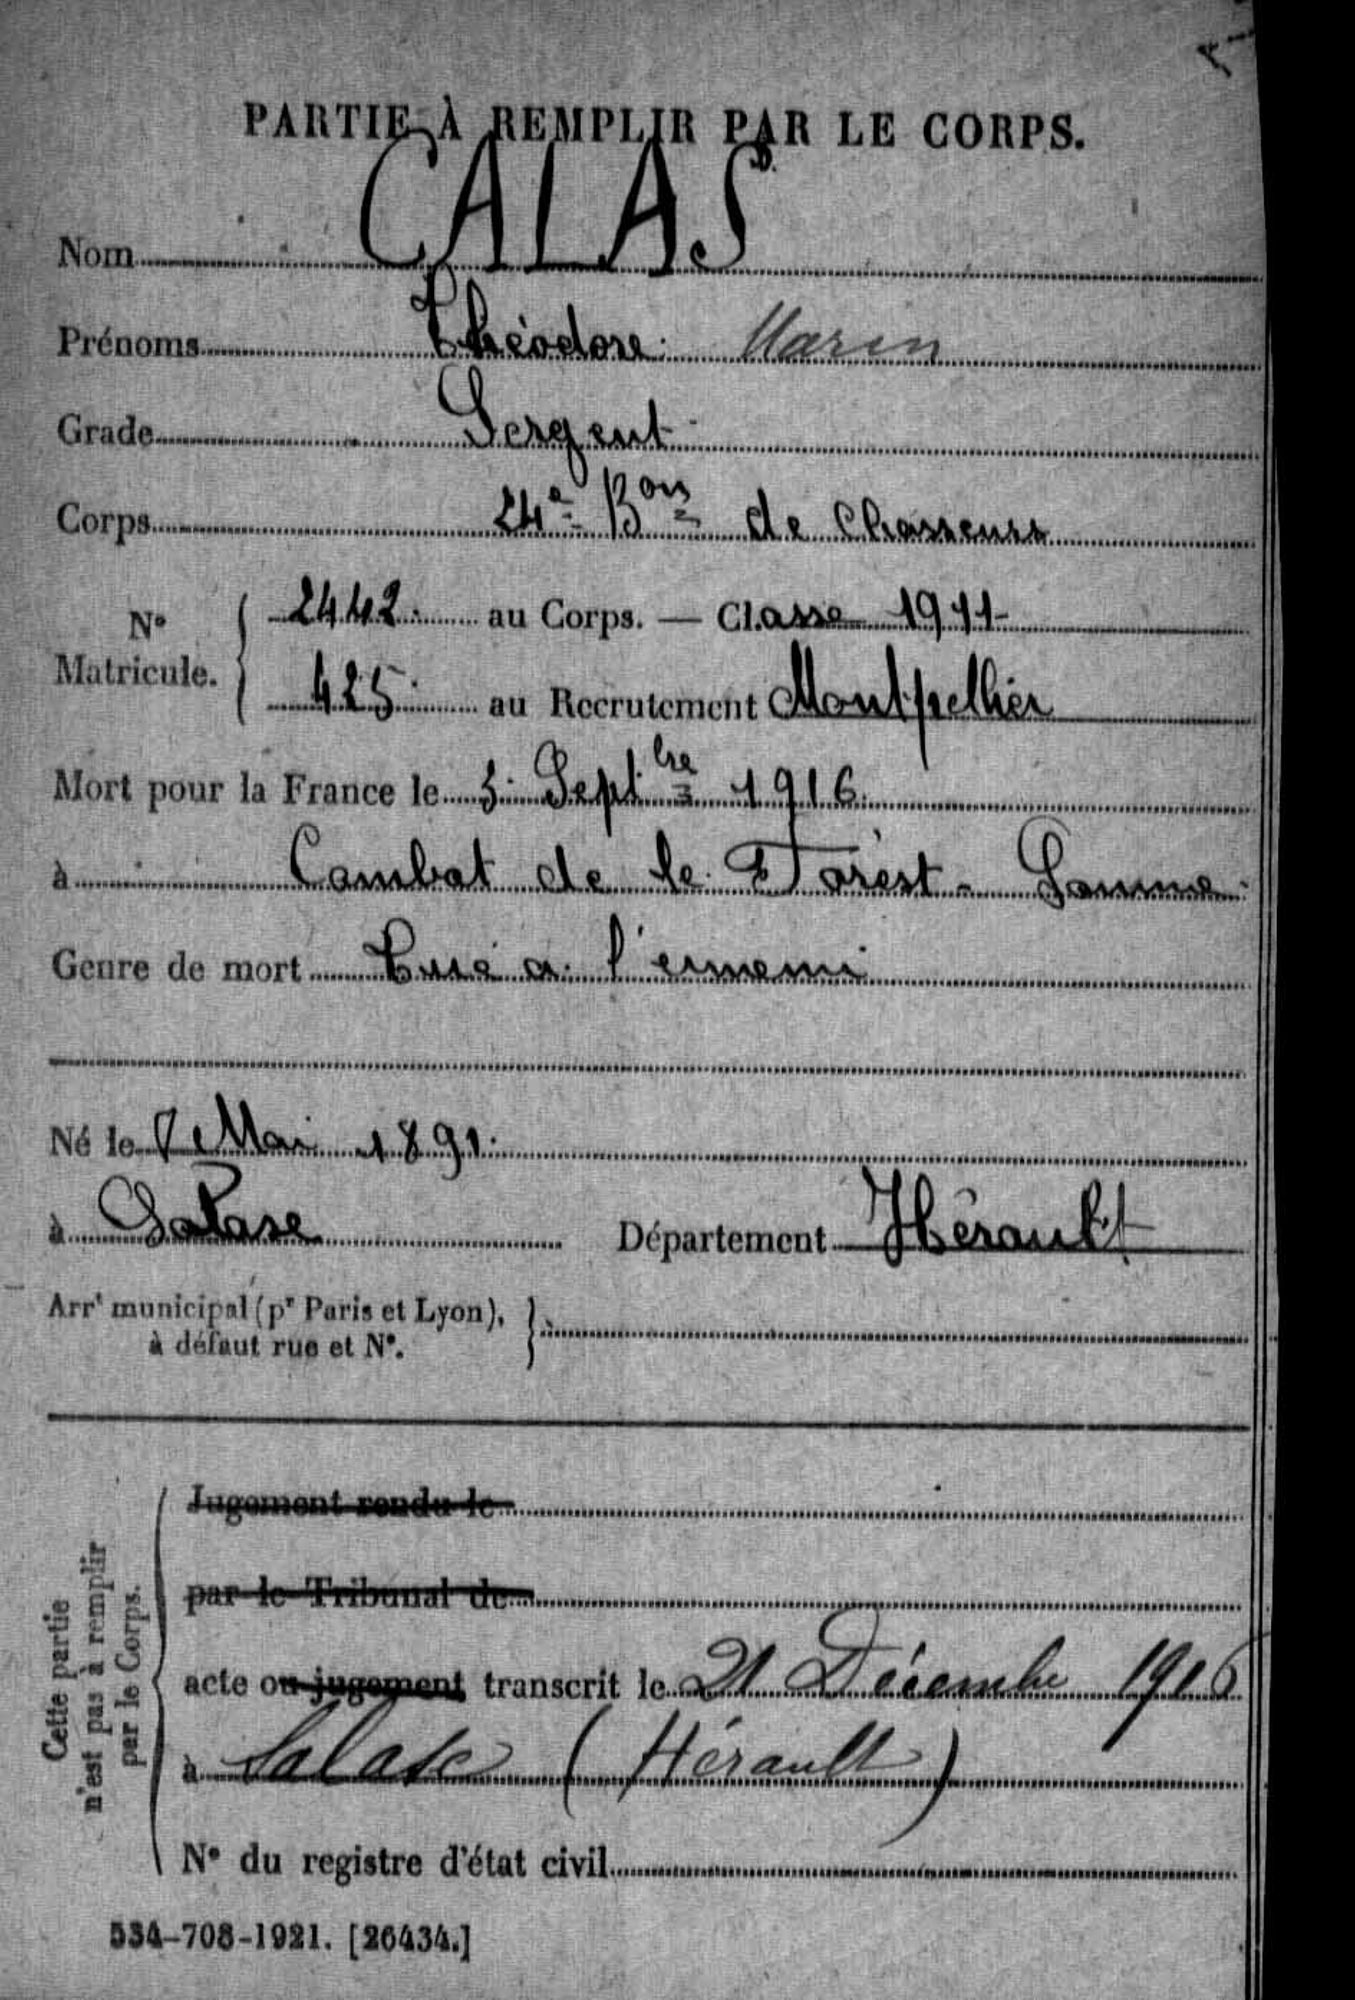 PARTIE À REMPLIR PAR LE CORPS.
Nom CALAS
Prénoms Théodore Marin
Grade Sergent
Corps 24e Bon de Chasseurs
N° Matricule. 2442 au Corps. — Classe 1911
425 au Recrutement Montpellier
Mort pour la France le 5 Septbre 1916
à Combat de le Forest - Somme
Genre de mort Tué à l'ennemi
Né le 7 Mai 1891
à Salase Département Hérault
Arrt municipal (pr Paris et Lyon),
à défaut rue et N°.
Cette partie
n'est pas à remplir
par le Corps.
Jugement rendu le
par le Tribunal de
acte ou jugement transcrit le 21 Décembre 1916
à Salasc (Hérault)
N° du registre d'état civil
534-708-1921. [26434.]